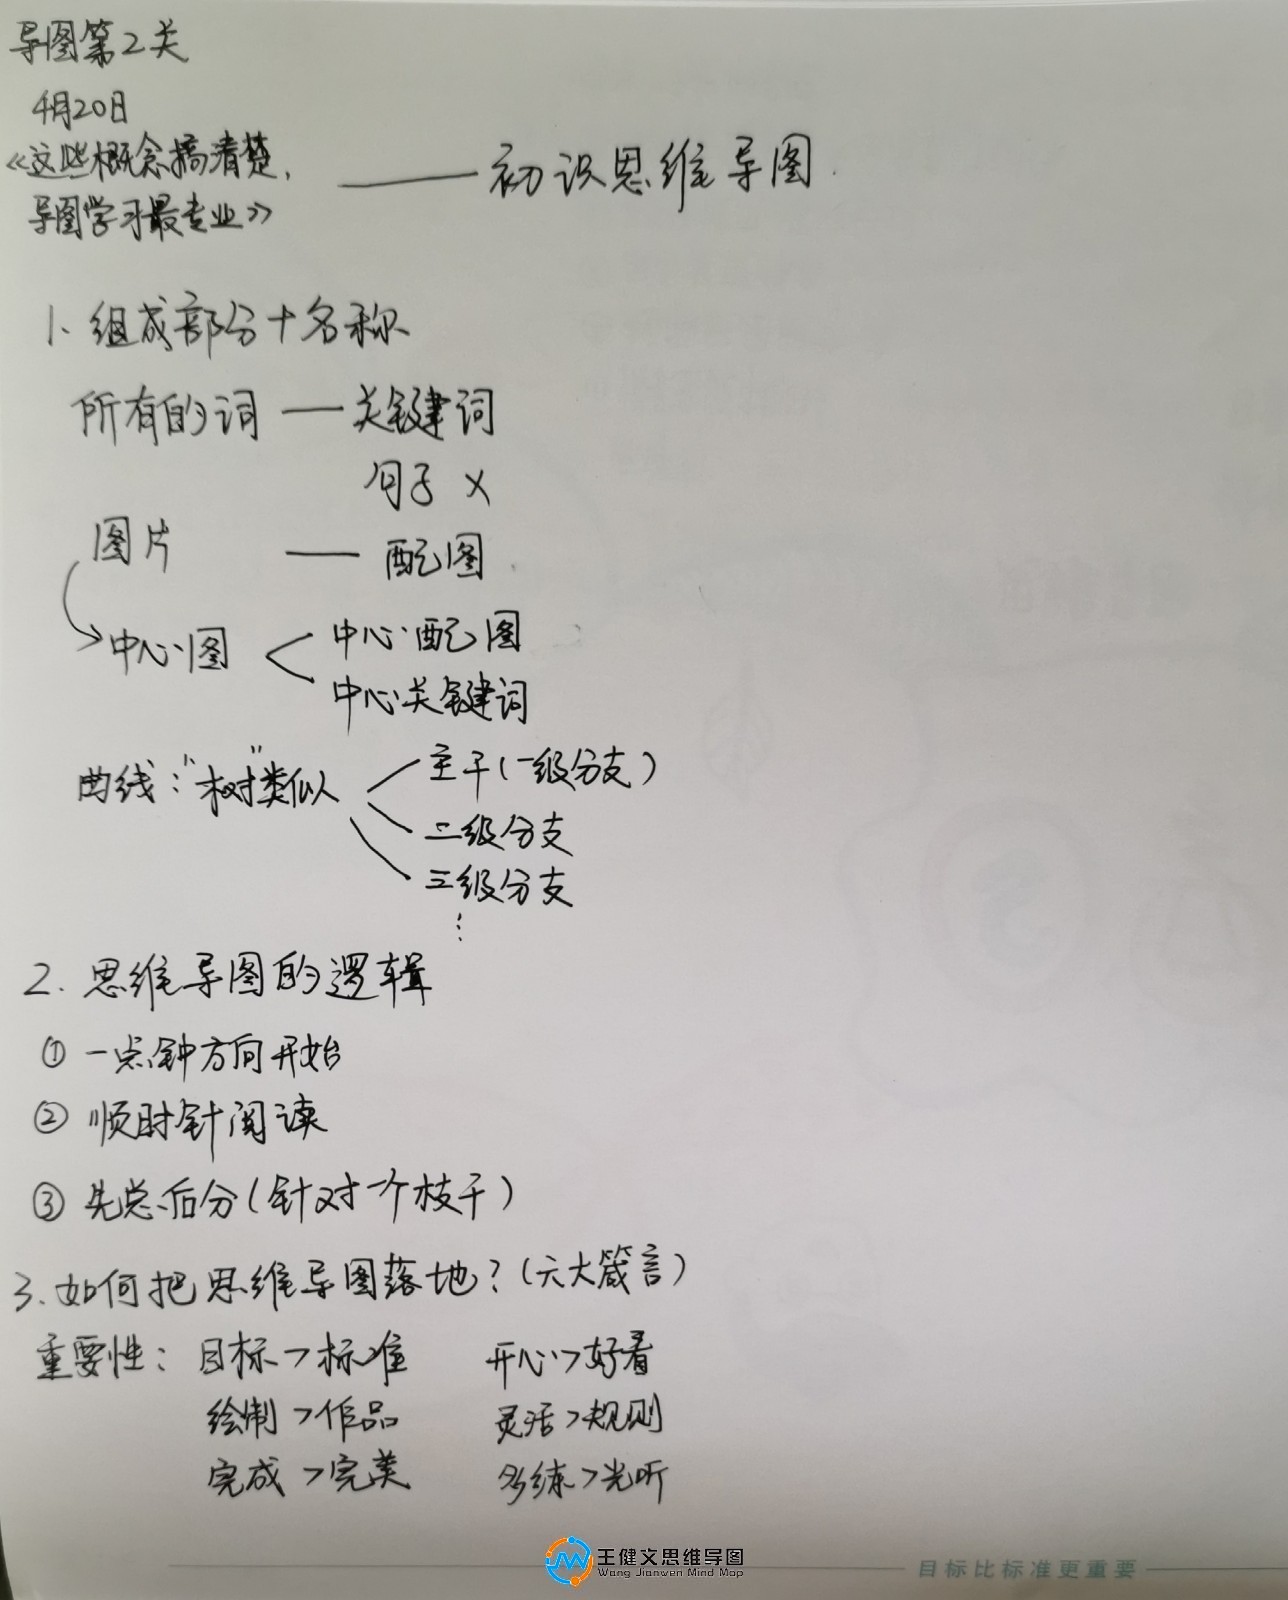 导图第2关
4月20日
《这些概念搞清楚,
导图学习最专业》
——初识思维导图
1、组成部分+名称
所有的词 — 关键词
句子 ×
图片 — 配图
中心图 < 中心配图
中心关键词
曲线:“树”类似
主干(一级分支)
二级分支
三级分支
⋮
2. 思维导图的逻辑
① 一点钟方向开始
② 顺时针阅读
③ 先总后分(针对一个枝干)
3. 如何把思维导图落地?(六大箴言)
重要性: 目标>标准 开心>好看
绘制>作品 灵活>规则
完成>完美 多练>光听
王健文思维导图
Wang Jianwen Mind Map
目标比标准更重要